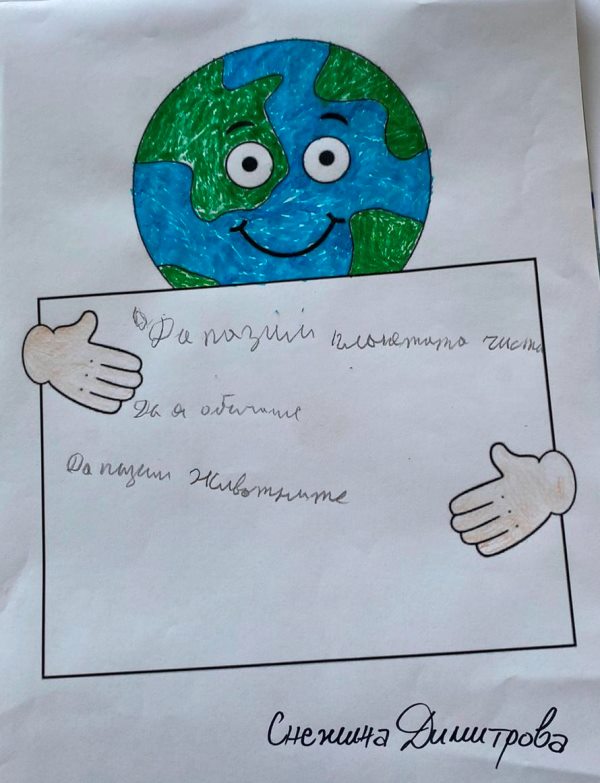 Да пазим планетата чиста
Да я обичаме
Да пазим животните
Снежина Димитрова